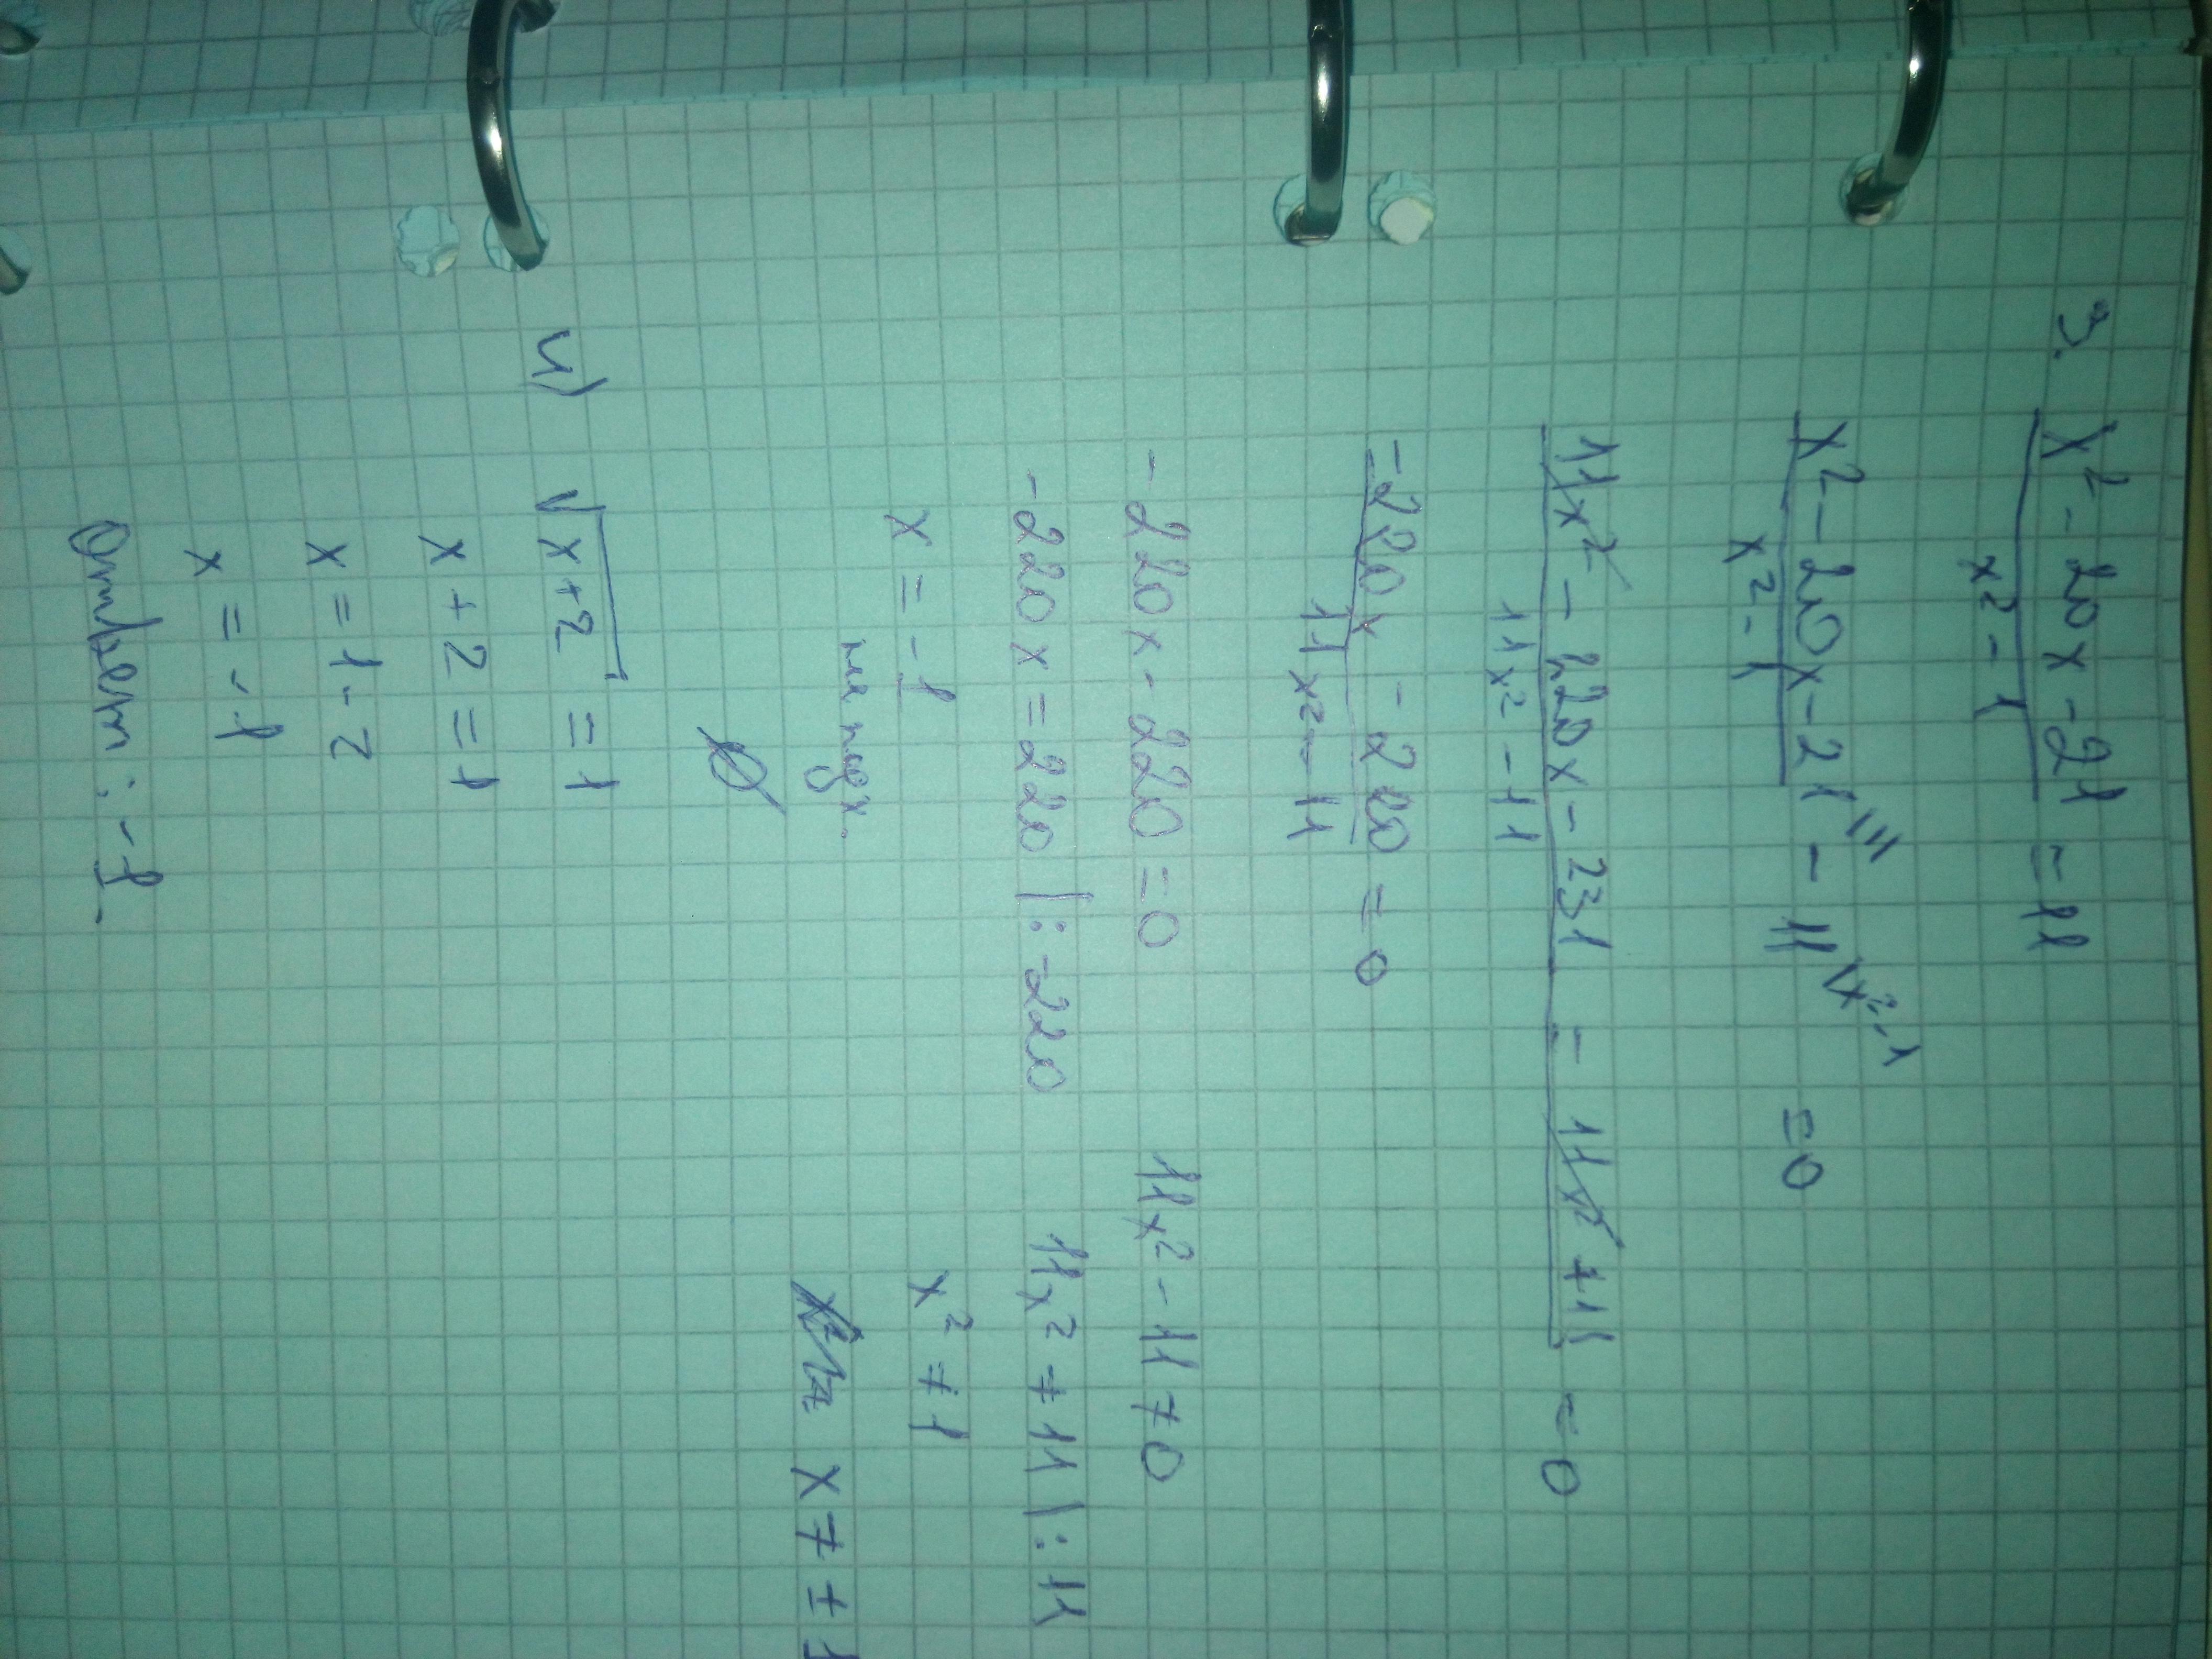 3. x² - 20x - 21 / x² - 1 = 11
x² - 20x - 21 \11 / x² - 1 - 11 \x²-1 = 0
11x² - 220x - 231 - 11x² + 11 / 11x² - 11 = 0
-220x - 220 / 11x² - 11 = 0
-220x - 220 = 0 11x² - 11 ≠ 0
-220x = 220 |: -220 11x² ≠ 11 |: 11
x = -1 x² ≠ 1
не подх. x ≠ ± 1
Ø
4) √x+2 = 1
x + 2 = 1
x = 1 - 2
x = -1
Ответ: -1.